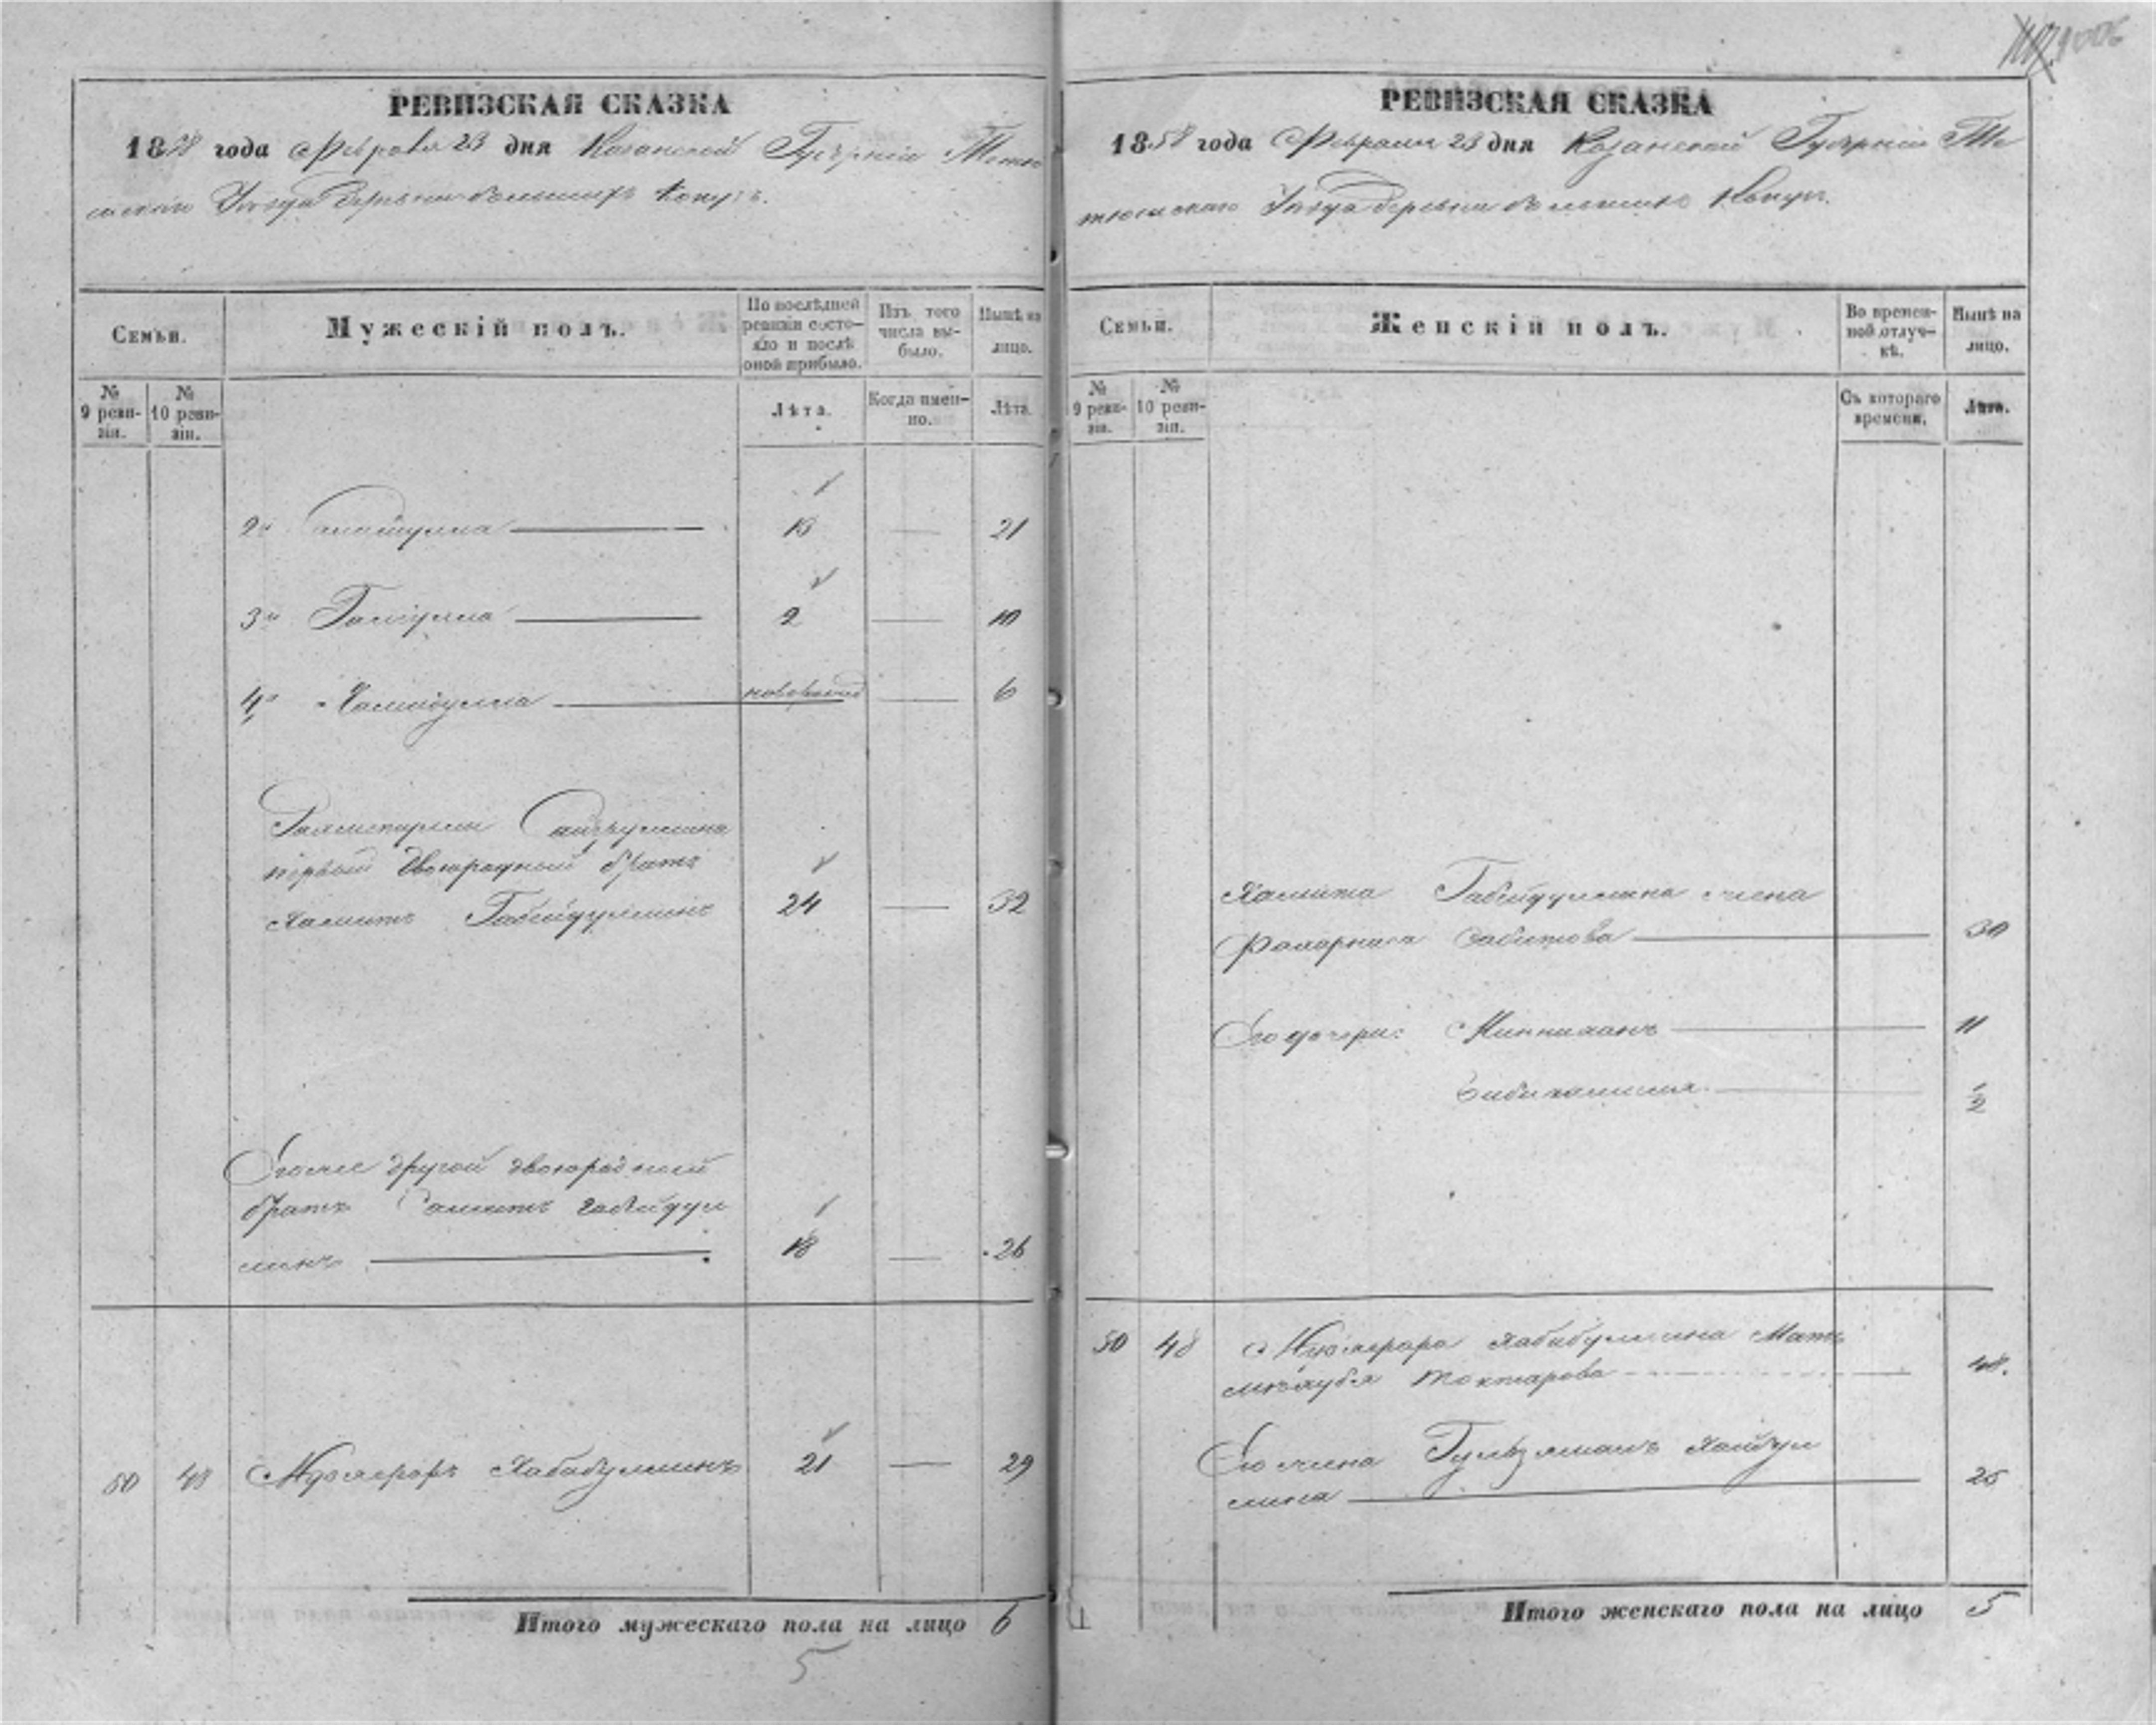 1006
РЕВИЗСКАЯ СКАЗКА
1858 года Февраля 23 дня Казанской Губерніи Тетю
шскаго Уѣзда деревни большихъ
Семьи.
Мужескій полъ.
По послѣдней ревизіи состояло и послѣ оной прибыло.
Изъ того числа выбыло.
Нынѣ на лицо.
№ 9 ревизіи.
№ 10 ревизіи.
Лѣта.
Когда именно.
Лѣта.
2й 13 — 21
3й 2 — 10
4й Хамидулла новорожд — 6
первый двоюродный братъ
Хамитъ Габейдуллинъ 24 — 32
Егоже другой двоюродный
братъ Самитъ Габейдул
линъ 18 — 26
50 48 Музафаръ Хабибуллинъ 21 — 29
Итого мужескаго пола на лицо 6
5
РЕВИЗСКАЯ СКАЗКА
1858 года Февраля 23 дня Казанской Губерніи Те
тюшскаго Уѣзда деревни большихъ
Семьи.
Женскій полъ.
Во временной отлучкѣ.
Нынѣ на лицо.
№ 9 ревизіи.
№ 10 ревизіи.
Съ котораго времени.
Лѣта.
Хамита Габейдуллина жена
Сабитова 30
Его дочери: Минниханъ 11
1/2
50 48 Музафара Хабибуллина Мать
Токтарова 48.
Его жена Гульзяманъ Хайбул
лина 25
Итого женскаго пола на лицо 5